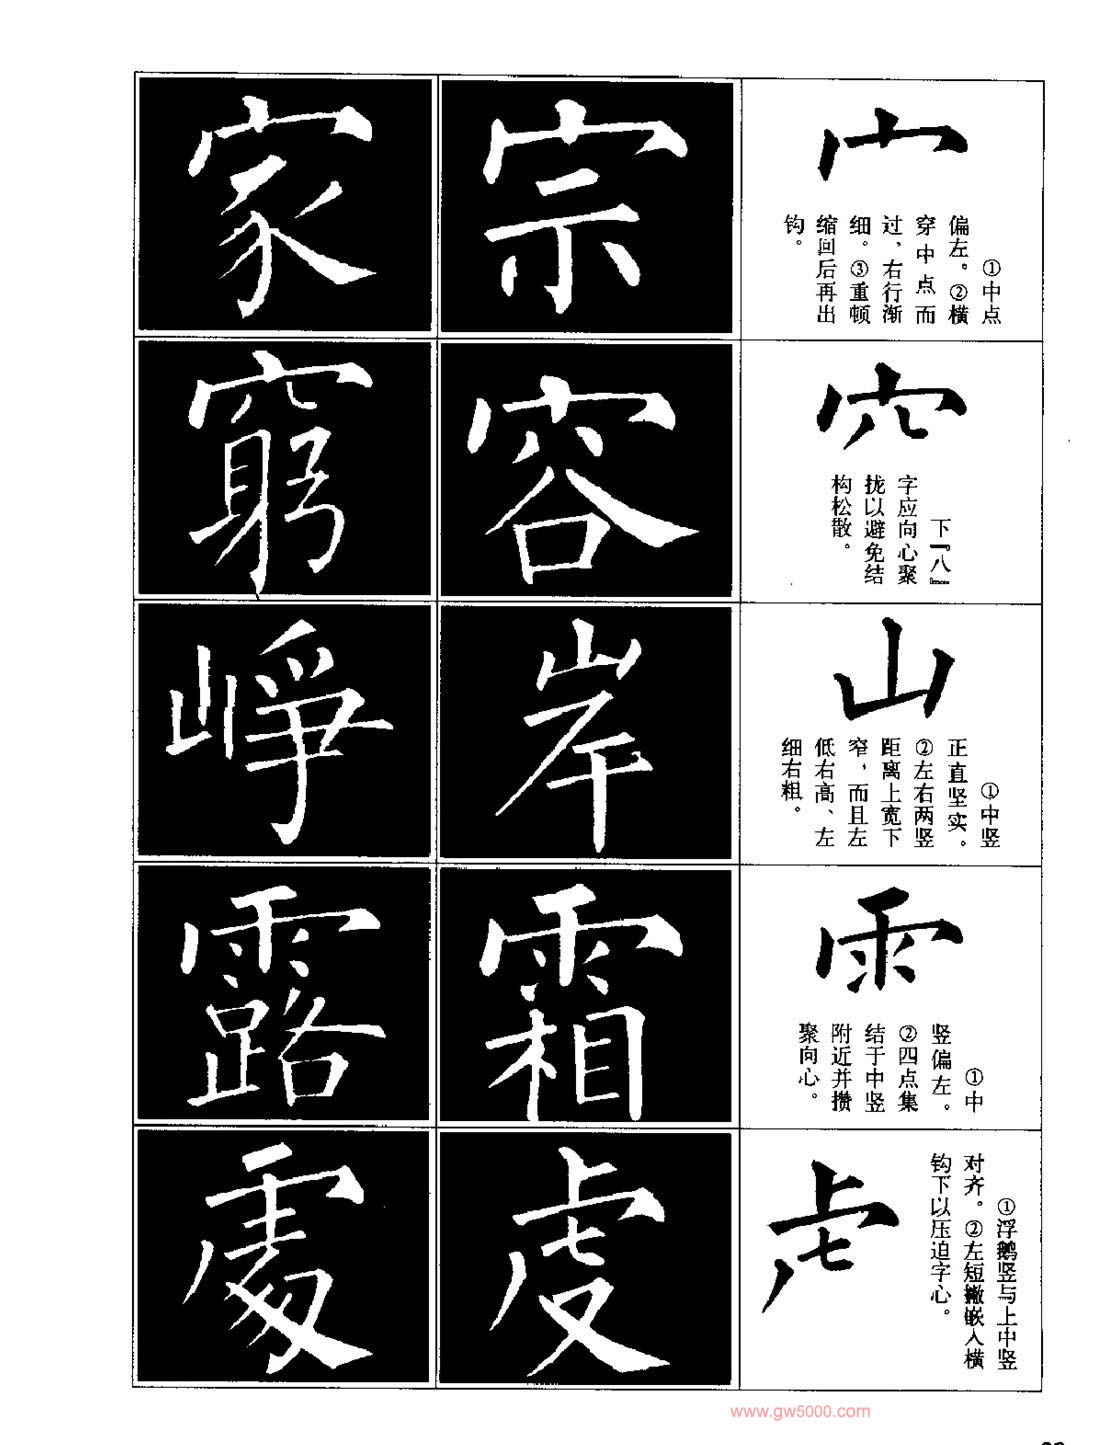 宀
①中点
偏左。②横
穿中点而
过、右行渐
细。③重顿
缩回后再出
钩。
宗
家
穴
下『八』
字应向心聚
拢以避免结
构松散。
容
窮
山
①中竖
正直坚实。
②左右两竖
距离上宽下
窄，而且左
低右高、左
细右粗。
岸
崢
雨
①中
竖偏左。
②四点集
结于中竖
附近并攒
聚向心。
霜
露
虍
①浮鹅竖与上中竖
对齐。②左短撇嵌入横
钩下以压迫字心。
虔
處
www.gw5000.com